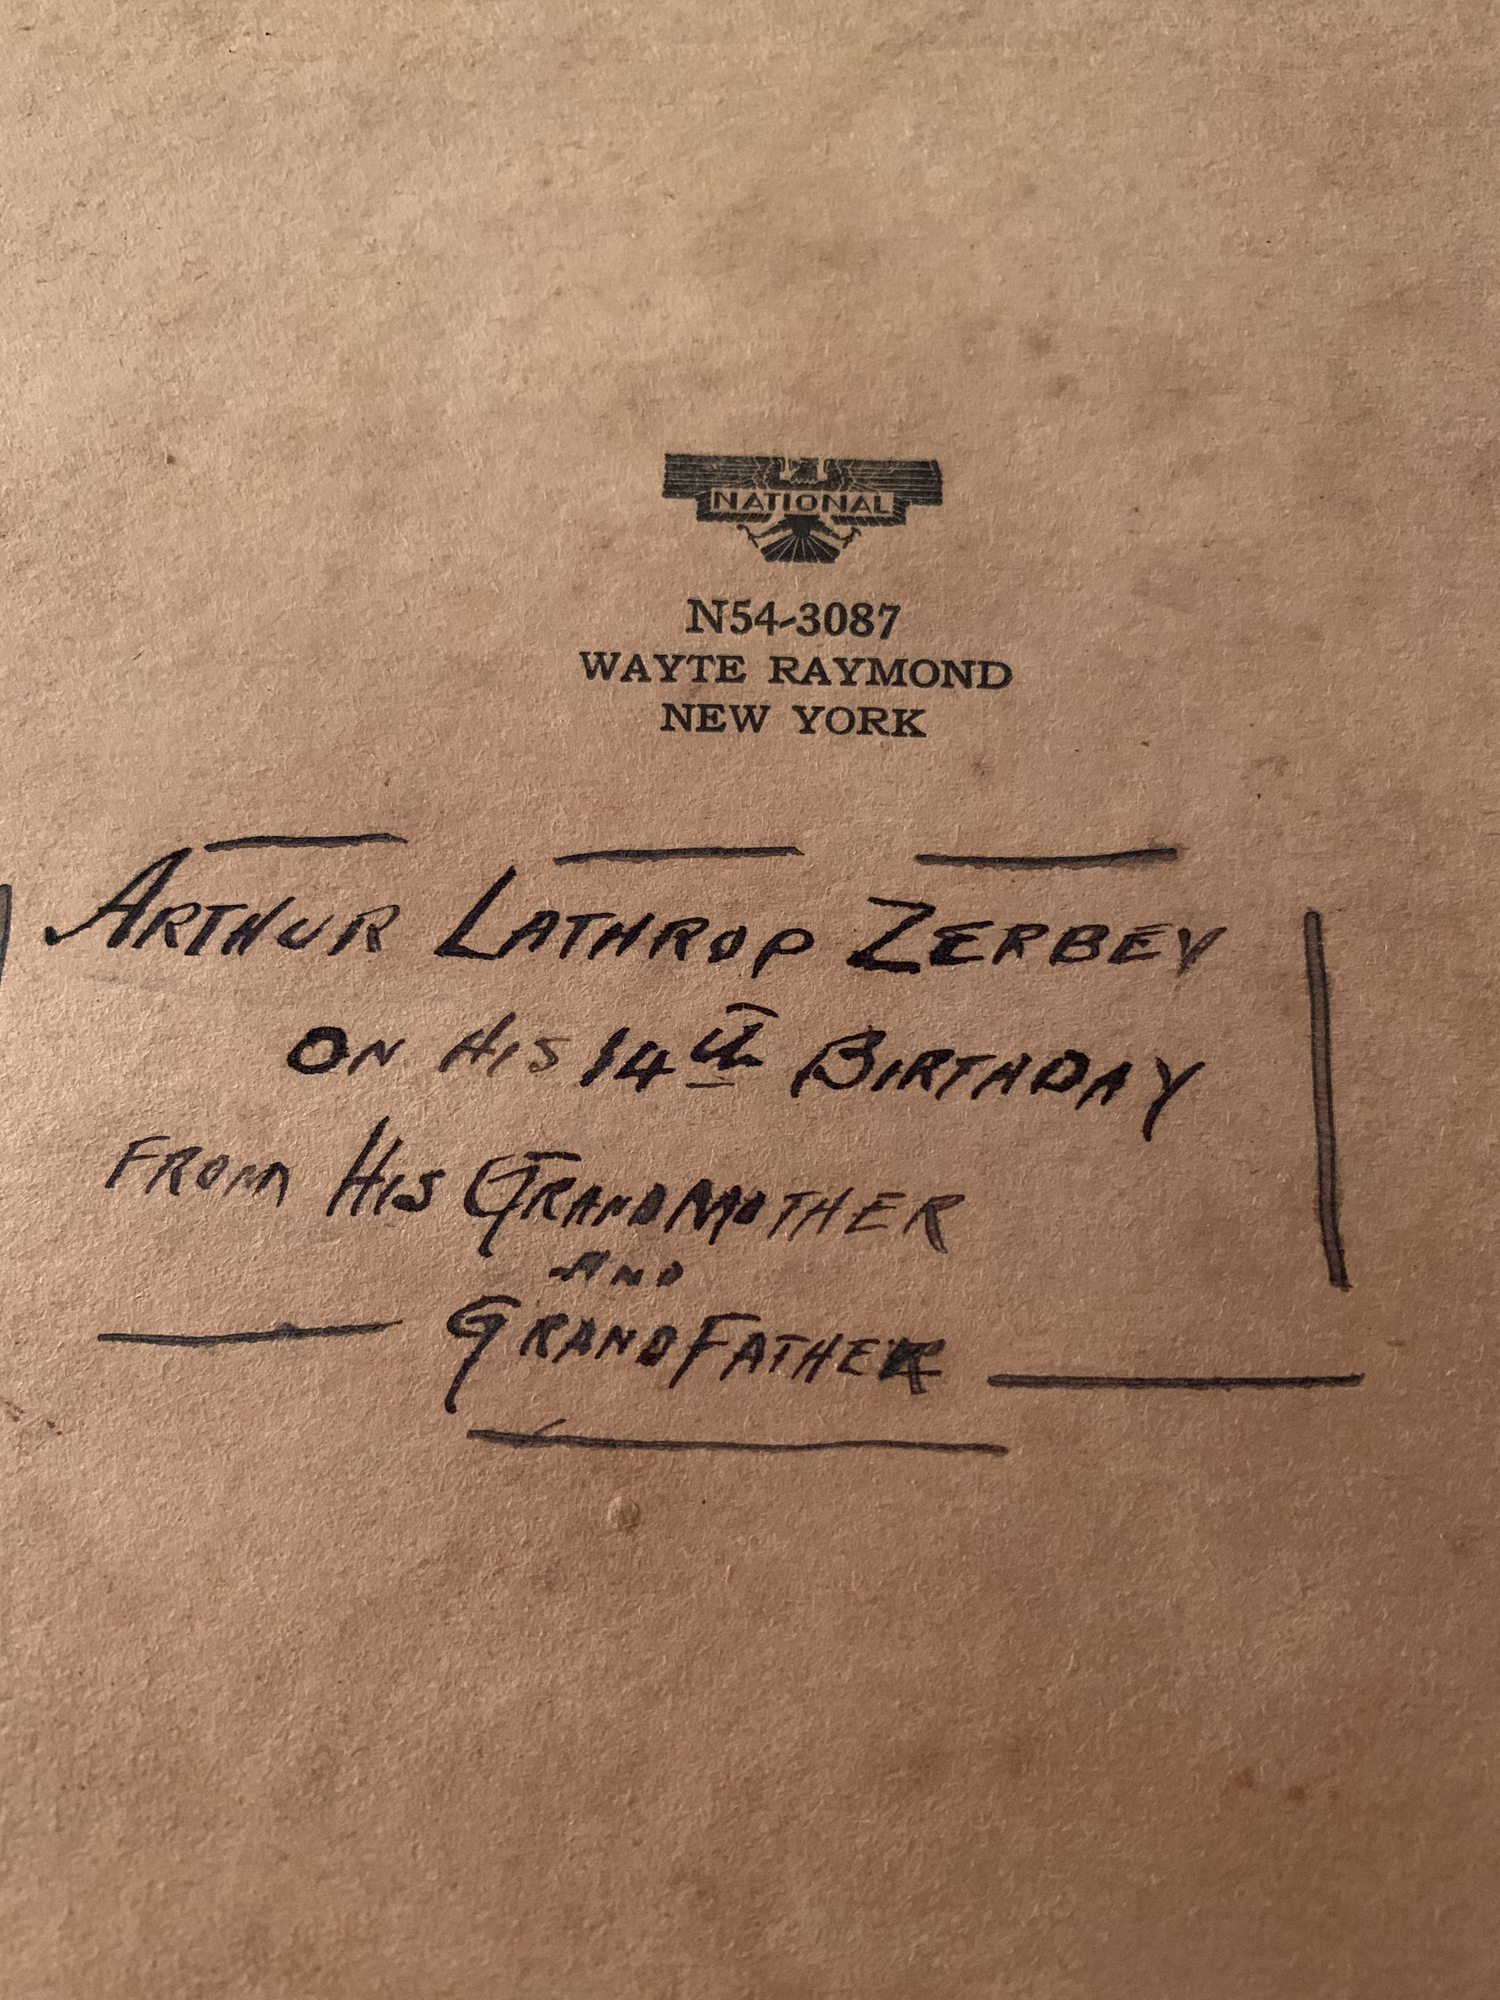 NATIONAL
N54-3087
WAYTE RAYMOND
NEW YORK
ARTHUR LATHROP ZERBEY
ON HIS 14th BIRTHDAY
FROM HIS GRANDMOTHER
AND
GRANDFATHER